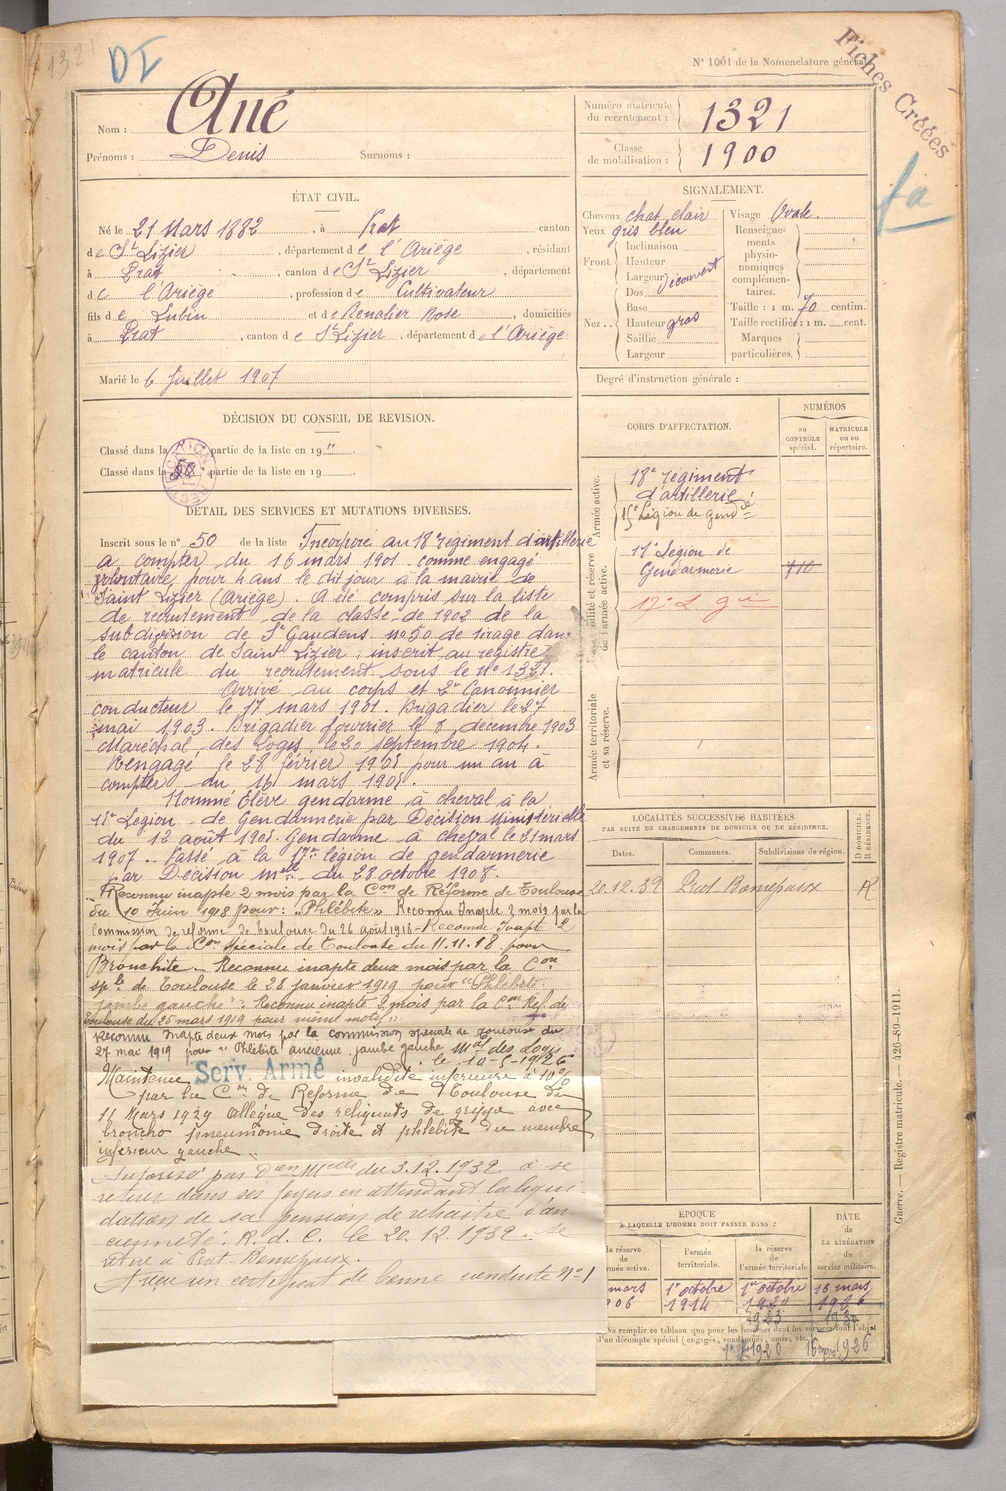 1321
DI
N° 1001 de la Nomenclature générale
Fiches Créées
fa
Nom : Ané
Prénoms : Denis Surnoms :
Numéro matricule du recrutement : 1321
Classe de mobilisation : 1900
ÉTAT CIVIL.
Né le 21 Mars 1882, à Prat canton
de St Lizier, département de l'Ariège, résidant
à Prat, canton de St Lizier, département
de l'Ariège, profession de Cultivateur
fils de Lubin et de Benalier Rose, domiciliés
à Prat, canton de St Lizier, département de l'Ariège
Marié le 6 Juillet 1907
SIGNALEMENT.
Cheveux chat. clair
Yeux gris bleu
Front. Inclinaison
Hauteur
Largeur découvert
Dos
Nez.. Base
Hauteur gros
Saillie
Largeur
Visage Ovale.
Renseignements physionomiques complémentaires.
Taille : 1 m. 70 centim.
Taille rectifiée : 1 m. cent.
Marques particulières.
Degré d'instruction générale :
DÉCISION DU CONSEIL DE REVISION.
Classé dans la partie de la liste en 19 "
Classé dans la partie de la liste en 19
DÉTAIL DES SERVICES ET MUTATIONS DIVERSES.
Inscrit sous le n° 50 de la liste Incorporé au 18e régiment d'artillerie
a compter du 16 mars 1901 comme engagé
volontaire pour 4 ans le dit jour à la mairie de
Saint Lizier (Ariège). A été compris sur la liste
de recrutement de la classe de 1902 de la
subdivision de St Gaudens n° 50 de tirage dans
le canton de Saint Lizier, inscrit au registre
matricule du recrutement sous le N° 1321.
Arrivé au corps et 2e Canonnier
conducteur le 17 mars 1901. Brigadier le 27
mai 1903. Brigadier fourrier le 8 décembre 1903
Maréchal des Logis le 20 septembre 1904.
Rengagé le 28 février 1905 pour un an à
compter du 16 mars 1905.
Nommé Élève gendarme à cheval à la
15e Légion de Gendarmerie par Décision Ministérielle
du 12 août 1905. Gendarme à cheval le 21 mars
1907. Passé à la 17e légion de gendarmerie
par Décision mlle du 28 octobre 1908.
Reconnu inapte 2 mois par la Con de Réforme de Toulouse
du 10 Juin 1918 pour : "Phlébite" Reconnu Inapte 2 mois par la
Commission de réforme de toulouse du 26 août 1918 - Reconnu Inapt 2
mois par la Con spéciale de Toulouse du 11.11.18 pour
Bronchite. Reconnu inapte deux mois par la Con
sple de Toulouse le 28 janvier 1919 pour "Phlébite
jambe gauche". Reconnu inapte 2 mois par la Con Réf. de
Toulouse du 25 mars 1919 pour même motif
Reconnu inapte deux mois par la commission spéciale de Toulouse du
27 mai 1919 pour "Phlébite ancienne jambe gauche Mal des Logis
le 10-5-1926
Maintenu Serv. Armé invalidité inférieure à 10%
par la Con de Réforme de Toulouse du
11 Mars 1929 allègue des reliquats de grippe avec
broncho pneumonie droite et phlébite du membre
inférieur gauche.
Autorisé par Don Mlle du 3.12.1932 à se
retirer dans ses foyers en attendant la liqui-
dation de sa pension de retraite d'an-
cienneté. R. d. C. le 20.12.1932. Se
retire à Prat-Bonrepaux.
A reçu un certificat de bonne conduite N° 1
CORPS D'AFFECTATION.
NUMÉROS
au CONTRÔLE spécial.
MATRICULE ou au répertoire.
Armée active.
18e régiment
d'artillerie
15e Légion de Gendie
Disponibilité et réserve de l'armée active.
17e Légion de
Gendarmerie 710
17e L gie
Armée territoriale et sa réserve.
LOCALITÉS SUCCESSIVES HABITÉES
PAR SUITE DE CHANGEMENTS DE DOMICILE OU DE RÉSIDENCE.
D. DOMICILE. R. RÉSIDENCE.
Dates. Communes. Subdivisions de région.
20.12.32 Prat Bonrepaux R
ÉPOQUE
À LAQUELLE L'HOMME DOIT PASSER DANS :
DATE DE LA LIBÉRATION DU service militaire.
la réserve de l'armée active.
l'armée territoriale.
la réserve de l'armée territoriale
mars 1906
1er octobre 1914
1er octobre 1920
16 mars 1926
1923
1930
Ne remplir ce tableau que pour les hommes dont les services font l'objet
d'un décompte spécial (engagés, condamnés, omis, etc.)
1920 16 mars 1926
Guerre. — Registre matricule. — 426-89-1911.